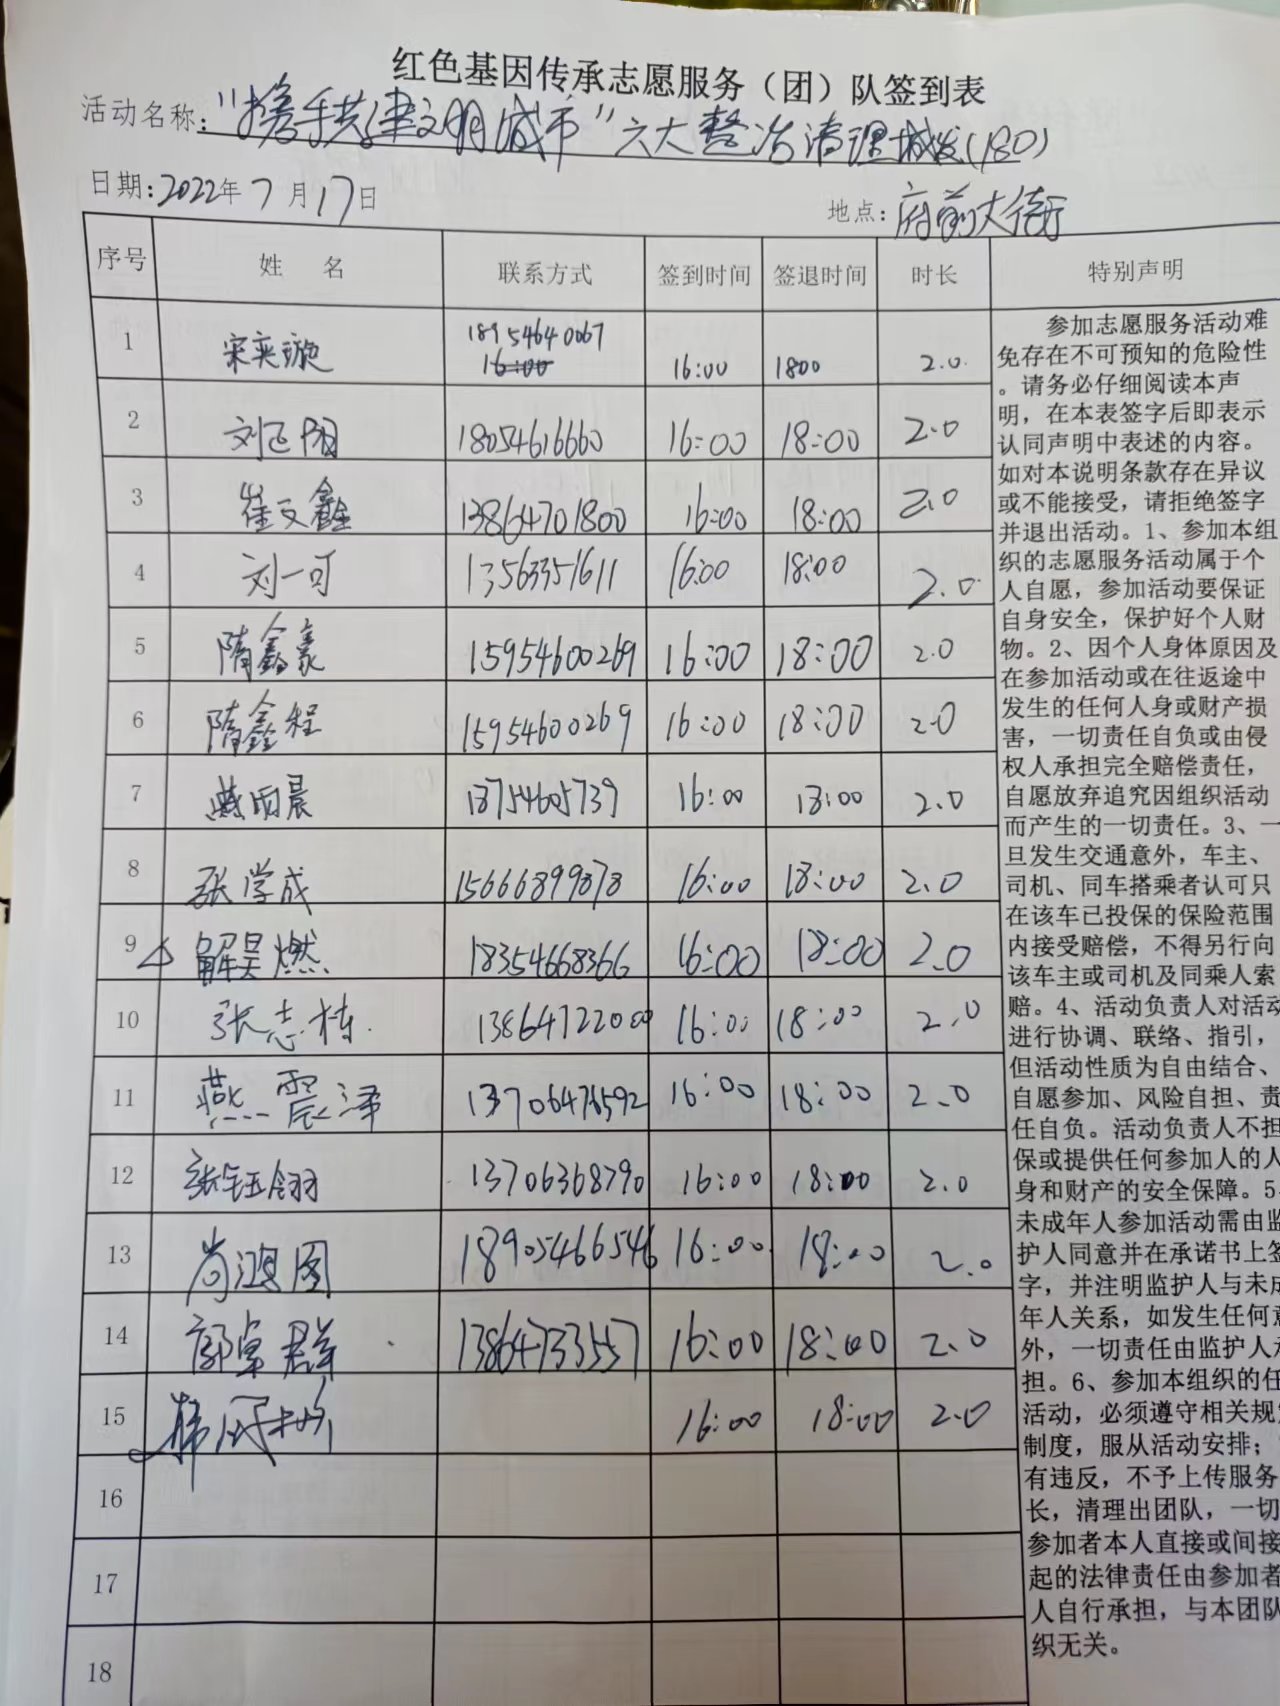 红色基因传承志愿服务（团）队签到表
活动名称："携手共建文明城市"六大整治清理城发(180)
日期:2022年7月17日
地点:府前大街
序号 姓 名 联系方式 签到时间 签退时间 时长 特别声明
1 宋奕漩 18954640067 16:00 16:00 1800 2.0.
2 刘 18054616660 16:00 18:00 2.0
3 崔文鑫 13864701800 16:00 18:00 2.0
4 刘一可 13563351611 16:00 18:00 2.0.
5 隋鑫豪 15954600269 16:00 18:00 2.0
6 隋鑫程 15954600269 16:00 18:00 2.0
7 晨 18754605739 16:00 18:00 2.0
8 张学成 15666899878 16:00 18:00 2.0
9 解昊燃 18354668366 16:00 18:00 2.0
10 张志栋. 13864722000 16:00 18:00 2.0
11 燕震泽 13706476592 16:00 18:00 2.0
12 张钰翎 13706368790 16:00 18:00 2.0
13 尚鸿图 18905466546 16:00 18:00 2.0
14 郭卓群 13864733557 16:00 18:00 2.0
15 16:00 18:00 2.0
16
17
18
参加志愿服务活动难
免存在不可预知的危险性
。请务必仔细阅读本声
明，在本表签字后即表示
认同声明中表述的内容。
如对本说明条款存在异议
或不能接受，请拒绝签字
并退出活动。1、参加本组
织的志愿服务活动属于个
人自愿，参加活动要保证
自身安全，保护好个人财
物。2、因个人身体原因及
在参加活动或在往返途中
发生的任何人身或财产损
害，一切责任自负或由侵
权人承担完全赔偿责任，
自愿放弃追究因组织活动
而产生的一切责任。3、一
旦发生交通意外，车主、
司机、同车搭乘者认可只
在该车已投保的保险范围
内接受赔偿，不得另行向
该车主或司机及同乘人索
赔。4、活动负责人对活动
进行协调、联络、指引，
但活动性质为自由结合、
自愿参加、风险自担、责
任自负。活动负责人不担
保或提供任何参加人的人
身和财产的安全保障。5、
未成年人参加活动需由监
护人同意并在承诺书上签
字，并注明监护人与未成
年人关系，如发生任何意
外，一切责任由监护人承
担。6、参加本组织的任
活动，必须遵守相关规
制度，服从活动安排；
有违反，不予上传服务
长，清理出团队，一切
参加者本人直接或间接
起的法律责任由参加者
人自行承担，与本团队
织无关。